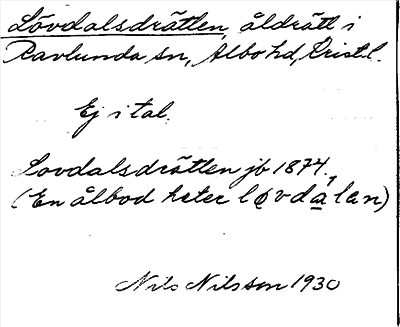 Lövdalsdrätten, åldrätt i
Ravlunda sn, Albo hd, Krist.l.
Ej i tal.
Lövdalsdrätten jb 1874.
(En ålbod heter løvdạlen)
Nils Nilsson 1930